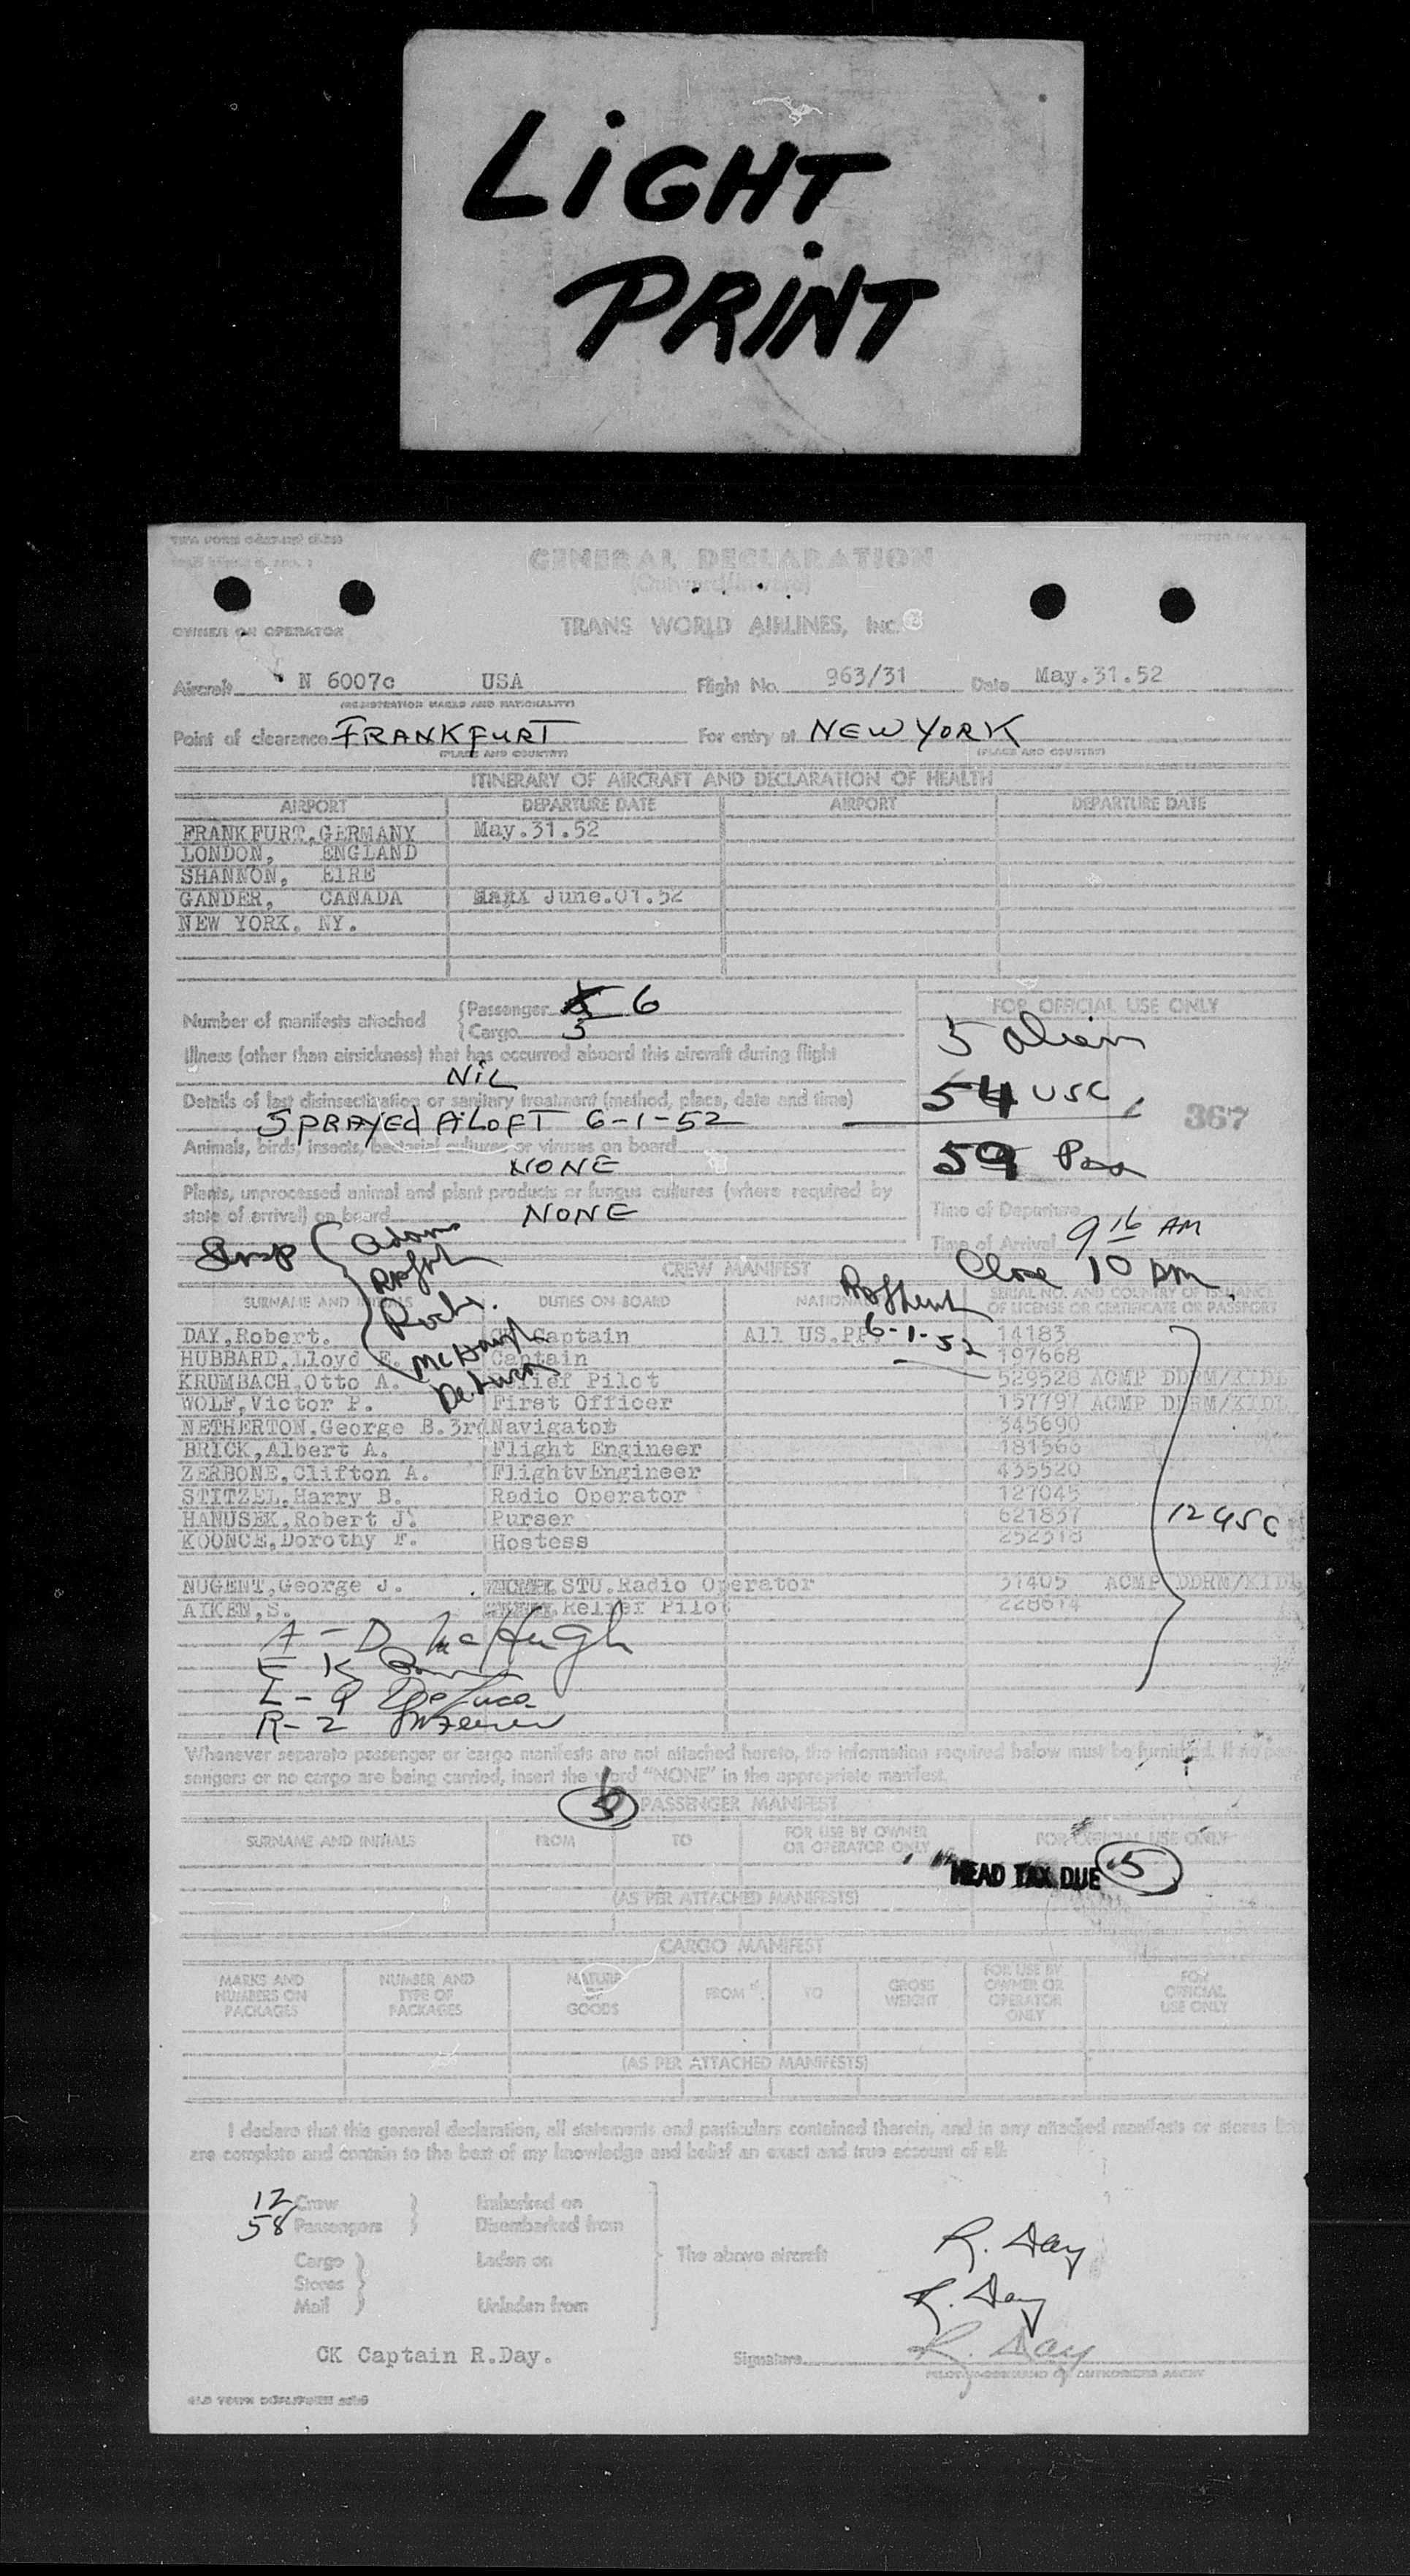 LiGHT
PRiNT
GENERAL DECLARATION
(Outward/Inward)
OWNER OR OPERATOR TRANS WORLD AIRLINES, INC.
Aircraft N 6007c USA Flight No. 963/31 Date May.31.52
(REGISTRATION MARKS AND NATIONALITY)
Point of clearance FRANKFURT For entry at NEW YORK
(PLACE AND COUNTRY) (PLACE AND COUNTRY)
ITINERARY OF AIRCRAFT AND DECLARATION OF HEALTH
AIRPORT DEPARTURE DATE AIRPORT DEPARTURE DATE
FRANKFURT,GERMANY May.31.52
LONDON, ENGLAND
SHANNON, EIRE
GANDER, CANADA June.01.52
NEW YORK, NY.
Number of manifests attached
Passenger 6
Cargo 5
FOR OFFICIAL USE ONLY
5 Alien
54 USC
367
59 Pax
Illness (other than airsickness) that has occurred aboard this aircraft during flight
NiL
Details of last disinsectization or sanitary treatment (method, place, date and time)
SPRAYEd AiLOFT 6-1-52
Animals, birds, insects, bacterial cultures or viruses on board
NONE
Plants, unprocessed animal and plant products or fungus cultures (where required by
state of arrival) on board NONE
Time of Departure
Time of Arrival 9 16 AM
Close 10 AM
Insp Adams
Roche
McHugh
DeLuca
6-1-52
CREW MANIFEST
SURNAME AND INITIALS DUTIES ON BOARD NATIONALITY SERIAL NO. AND COUNTRY OF ISSUANCE
OF LICENSE OR CERTIFICATE OR PASSPORT
DAY,Robert. Captain All US.PP. 14183
HUBBARD,Lloyd E. Captain 197668
KRUMBACH,Otto A. Relief Pilot 529528 ACMP DDRM/KIDL
WOLF,Victor P. First Officer 157797 ACMP DDRM/KIDL
NETHERTON,George B.3rd Navigator 345690
BRICK,Albert A. Flight Engineer 181566
ZERBONE,Clifton A. FlightvEngineer 435520
STITZEL,Harry B. Radio Operator 127045
HANUSEK,Robert J. Purser 621837
KOONCE,Dorothy F. Hostess 252518
12 USC
NUGENT,George J. STU.Radio Operator 31405 ACMP DDRM/KIDL
AIKEN,S. Relief Pilot 228614
A - D McHugh
E - K
L - Q DeLuca
R - Z
Whenever separate passenger or cargo manifests are not attached hereto, the information required below must be furnished. If no pas-
sengers or no cargo are being carried, insert the word "NONE" in the appropriate manifest.
PASSENGER MANIFEST
SURNAME AND INITIALS FROM TO FOR USE BY OWNER
OR OPERATOR ONLY FOR OFFICIAL USE ONLY
HEAD TAX DUE 5
(AS PER ATTACHED MANIFESTS)
CARGO MANIFEST
MARKS AND
NUMBERS ON
PACKAGES NUMBER AND
TYPE OF
PACKAGES NATURE
OF
GOODS FROM TO GROSS
WEIGHT FOR USE BY
OWNER OR
OPERATOR
ONLY FOR
OFFICIAL
USE ONLY
(AS PER ATTACHED MANIFESTS)
I declare that this general declaration, all statements and particulars contained therein, and in any attached manifests or stores lists
are complete and contain to the best of my knowledge and belief an exact and true account of all:
12 Crew Embarked on
58 Passengers Disembarked from
Cargo Laden on The above aircraft
Stores
Mail Unladen from
R. Day
R. Day
CK Captain R.Day. Signature R. Day
PILOT IN COMMAND OR AUTHORIZED AGENT